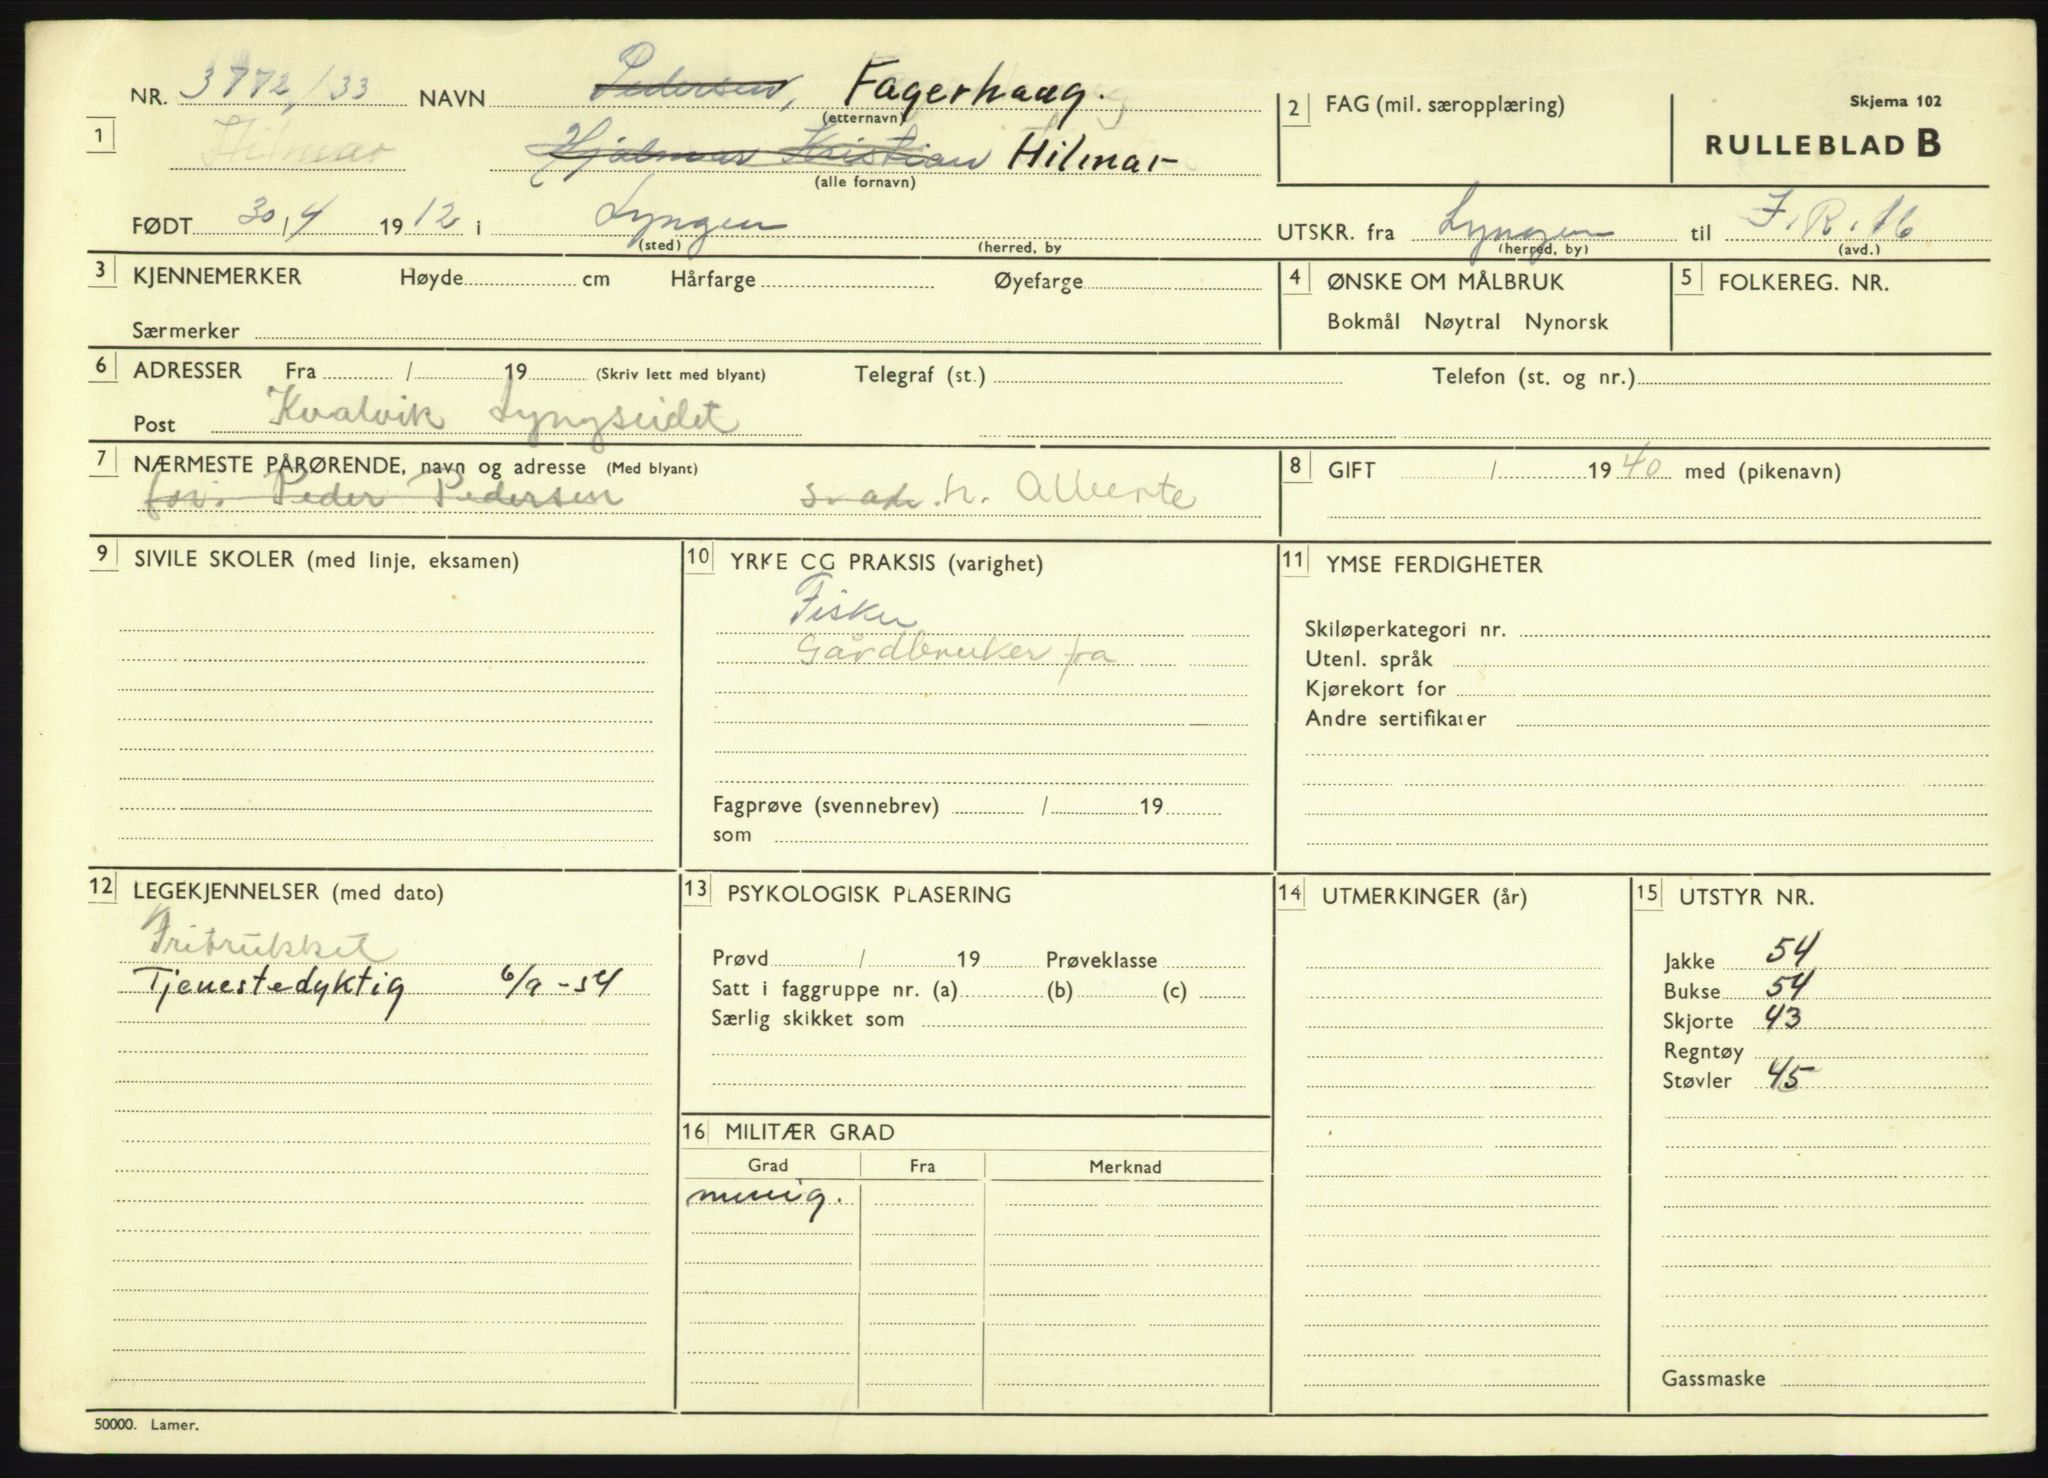 NR. 3772/33 NAVN Pedersen, Fagerhaug.
(etternavn)
1 Hilmar Hjalmar Kristian Hilmar
(alle fornavn)
FØDT 30/4 1912 i Lyngen
(sted) (herred, by
2 FAG (mil. særopplæring)
Skjema 102
RULLEBLAD B
UTSKR. fra Lyngen til I.R.16
(herred, by) (avd.)
3 KJENNEMERKER Høyde cm Hårfarge Øyefarge
Særmerker
4 ØNSKE OM MÅLBRUK
Bokmål Nøytral Nynorsk
5 FOLKEREG. NR.
6 ADRESSER Fra / 19 (Skriv lett med blyant) Telegraf (st.) Telefon (st. og nr.)
Post Kvalvik Lyngseidet
7 NÆRMESTE PÅRØRENDE, navn og adresse (Med blyant)
Peder Pedersen h. Alberte
8 GIFT / 1940 med (pikenavn)
9 SIVILE SKOLER (med linje, eksamen)
10 YRKE CG PRAKSIS (varighet)
Fisker
Gårdbruker fra
Fagprøve (svennebrev) / 19
som
11 YMSE FERDIGHETER
Skiløperkategori nr.
Utenl. språk
Kjørekort for
Andre sertifikater
12 LEGEKJENNELSER (med dato)
Fritrukket
Tjenestedyktig 6/9-54
13 PSYKOLOGISK PLASERING
Prøvd / 19 Prøveklasse
Satt i faggruppe nr. (a) (b) (c)
Særlig skikket som
14 UTMERKINGER (år)
15 UTSTYR NR.
Jakke 54
Bukse 54
Skjorte 43
Regntøy
Støvler 45
Gassmaske
16 MILITÆR GRAD
Grad Fra Merknad
menig.
50000. Lamer.